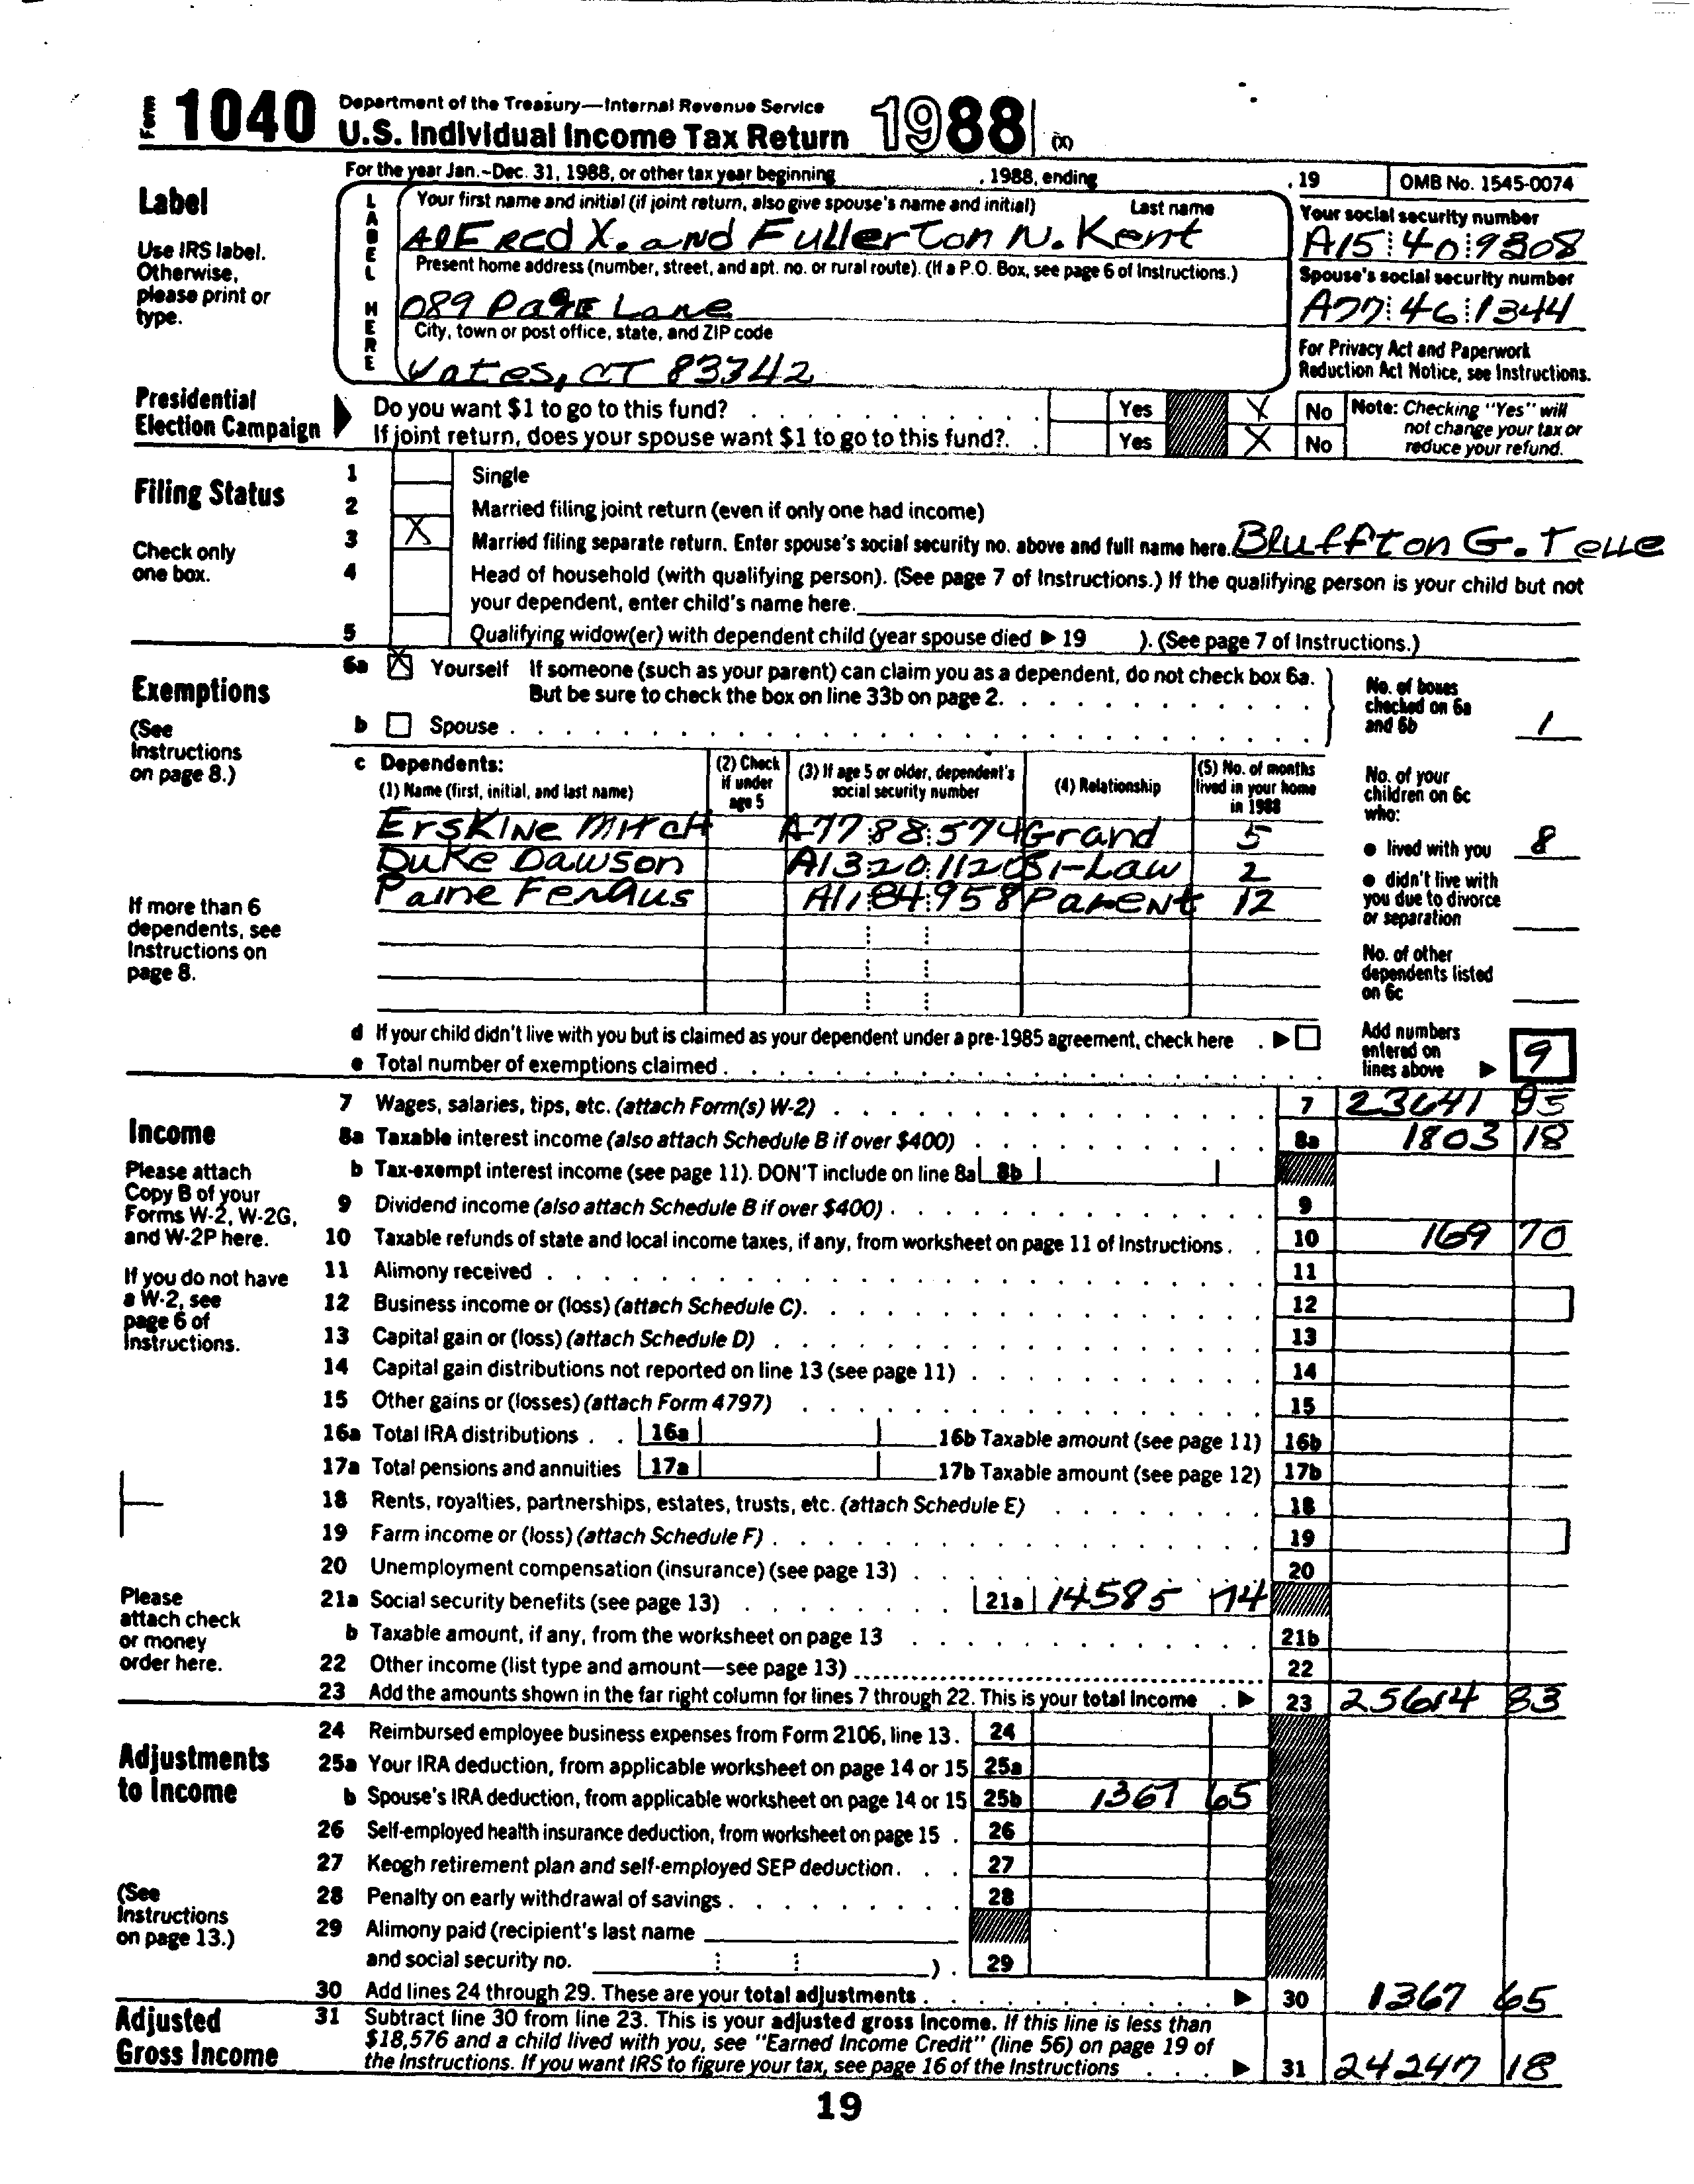 Form 1040 Department of the Treasury—Internal Revenue Service
U.S. Individual Income Tax Return 1988 (X)
For the year Jan.-Dec. 31, 1988, or other tax year beginning , 1988, ending , 19 OMB No. 1545-0074
Label
Use IRS label. Otherwise, please print or type.
LABEL HERE
Your first name and initial (if joint return, also give spouse's name and initial) Last name
AlFred X. and Fullerton N. Kent
Your social security number
A15 40 9308
Present home address (number, street, and apt. no. or rural route). (If a P.O. Box, see page 6 of Instructions.)
089 Page Lane
Spouse's social security number
A77 46 1344
City, town or post office, state, and ZIP code
Yates, CT 83342
For Privacy Act and Paperwork Reduction Act Notice, see Instructions.
Presidential Election Campaign
Do you want $1 to go to this fund? Yes X No
If joint return, does your spouse want $1 to go to this fund?. Yes X No
Note: Checking "Yes" will not change your tax or reduce your refund.
Filing Status
Check only one box.
1 Single
2 Married filing joint return (even if only one had income)
3 X Married filing separate return. Enter spouse's social security no. above and full name here. Bluffton G. Telle
4 Head of household (with qualifying person). (See page 7 of Instructions.) If the qualifying person is your child but not
your dependent, enter child's name here.
5 Qualifying widow(er) with dependent child (year spouse died ▶ 19 ). (See page 7 of Instructions.)
Exemptions
(See Instructions on page 8.)
6a X Yourself If someone (such as your parent) can claim you as a dependent, do not check box 6a.
But be sure to check the box on line 33b on page 2.
b Spouse
No. of boxes checked on 6a and 6b 1
c Dependents:
(1) Name (first, initial, and last name) (2) Check if under age 5 (3) If age 5 or older, dependent's social security number (4) Relationship (5) No. of months lived in your home in 1988
Erskine Mitch A77 88 574 Grand 5
Duke Dawson A13 20 1120 Si-Law 2
Paine Fergus A11 84 958 Parent 12
If more than 6 dependents, see Instructions on page 8.
No. of your children on 6c who:
● lived with you 8
● didn't live with you due to divorce or separation
No. of other dependents listed on 6c
d If your child didn't live with you but is claimed as your dependent under a pre-1985 agreement, check here ▶
e Total number of exemptions claimed
Add numbers entered on lines above ▶ 9
Income
Please attach Copy B of your Forms W-2, W-2G, and W-2P here.
If you do not have a W-2, see page 6 of Instructions.
7 Wages, salaries, tips, etc. (attach Form(s) W-2) 7 23641 95
8a Taxable interest income (also attach Schedule B if over $400) 8a 1803 18
b Tax-exempt interest income (see page 11). DON'T include on line 8a 8b
9 Dividend income (also attach Schedule B if over $400) 9
10 Taxable refunds of state and local income taxes, if any, from worksheet on page 11 of Instructions. 10 169 70
11 Alimony received 11
12 Business income or (loss) (attach Schedule C). 12
13 Capital gain or (loss) (attach Schedule D) 13
14 Capital gain distributions not reported on line 13 (see page 11) 14
15 Other gains or (losses) (attach Form 4797) 15
16a Total IRA distributions 16a 16b Taxable amount (see page 11) 16b
17a Total pensions and annuities 17a 17b Taxable amount (see page 12) 17b
18 Rents, royalties, partnerships, estates, trusts, etc. (attach Schedule E) 18
19 Farm income or (loss) (attach Schedule F) 19
20 Unemployment compensation (insurance) (see page 13) 20
21a Social security benefits (see page 13) 21a 14585 74
b Taxable amount, if any, from the worksheet on page 13 21b
22 Other income (list type and amount—see page 13) 22
23 Add the amounts shown in the far right column for lines 7 through 22. This is your total income ▶ 23 25614 83
Please attach check or money order here.
Adjustments to Income
(See Instructions on page 13.)
24 Reimbursed employee business expenses from Form 2106, line 13. 24
25a Your IRA deduction, from applicable worksheet on page 14 or 15 25a
b Spouse's IRA deduction, from applicable worksheet on page 14 or 15 25b 1367 65
26 Self-employed health insurance deduction, from worksheet on page 15 26
27 Keogh retirement plan and self-employed SEP deduction. 27
28 Penalty on early withdrawal of savings 28
29 Alimony paid (recipient's last name
and social security no. ) 29
30 Add lines 24 through 29. These are your total adjustments ▶ 30 1367 65
Adjusted Gross Income
31 Subtract line 30 from line 23. This is your adjusted gross income. If this line is less than
$18,576 and a child lived with you, see "Earned Income Credit" (line 56) on page 19 of
the Instructions. If you want IRS to figure your tax, see page 16 of the Instructions ▶ 31 24247 18
19